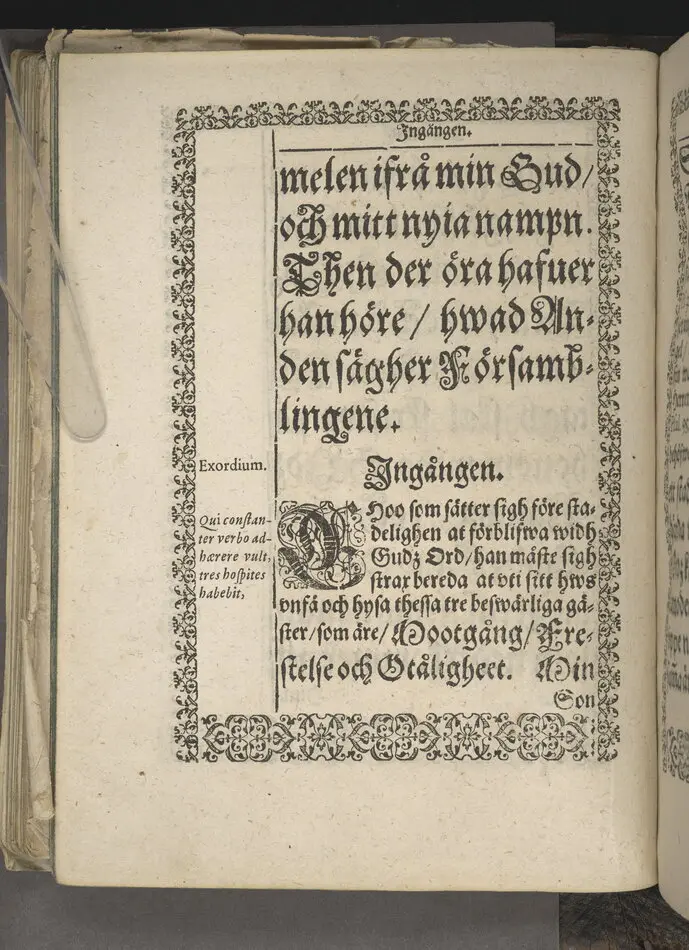 Ingången.
melen ifrå min Gud/
och mitt nyia nampn.
Then der öra hafuer
han höre / hwad An-
den sägher Församb-
lingene.
Exordium.
Ingången.
Qui constan-
ter verbo ad-
hærere vult,
tres hospites
habebit,
HOo som sätter sigh före sta-
delighen at förblifwa widh
Gudz Ord/han måste sigh
strax bereda at vti sitt hws
vnfå och hysa thessa tre beswärliga gä-
ster/som äre/ Mootgång/ Fre-
stelse och Otåligheet. Min
Son